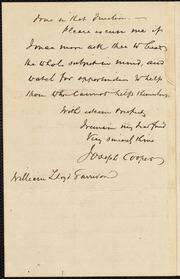 done in that direction —
Please excuse me if
I once more ask thee to
the whole subject in mind, and
watch for opportunities to help
them who cannot help themselves
With esteem
I remain my dear friend
Very sincerely thine
Joseph Cooper
William Lloyd Garrison